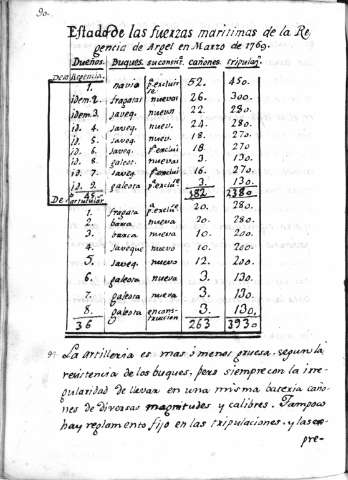 90.
Estado de las fuerzas maritimas de la Re
gencia de Argel en Marzo de 1769.
Dueños. Buques. su constn. cañones. tripulan.
De la Regencia.
1. navio pa. excluirse 52. 450.
idem. 2. fragatas nuevas 26. 300.
idem. 3. javeq. nuevo 22. 280.
id. 4. javeq. nuev. 24. 280.
id. 5. javeq. nuev. 18. 270.
id. 6. javeq. pa. exclui 18. 270
id. 8. galeot. nuevas 3. 130.
id. 7. javeq. pa. exclui 16. 270.
id. 9. galeota pa. exclui 3. 130.
45. 182 2380
De Particular.
1. fragata a pa. excluise 20. 280.
2. barca nueva 20. 280.
3. barca nueva 10. 200.
4. javeque nuevo 10. 200
5. javeq. nuevo 12. 200.
6. galeota nueva 3. 130.
7. galeota nueva 3. 130.
8. galeota en cons-
trucion 3. 130.
36 263 3930.
La artilleria es mas ó menos gruesa, segun la
resistencia de los buques, pero siempre con la irre-
gularidad de llevar en una misma bateria caño-
nes de diversas magnitudes y calibres. Tampoco
hay reglamento fijo en las tripulaciones, y las ex-
pre-